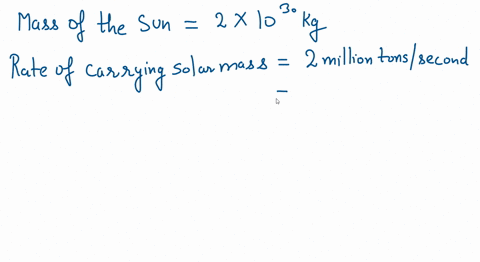 Mass of the Sun = 2 × 10³⁰ kg
Rate of carrying solar mass = 2 million tons/second
=